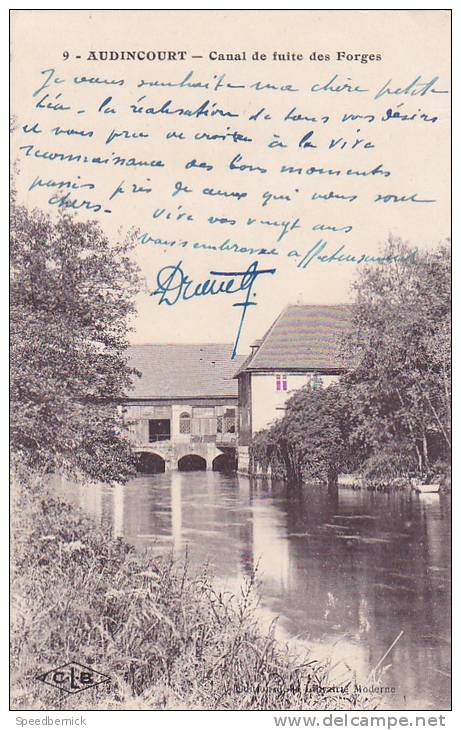 9 - AUDINCOURT — Canal de fuite des Forges
Je vous souhaite ma chère petite
Léa - la réalisation de tous vos désirs
et vous prie de croire à la vive
reconnaissance des bons moments
passés près de ceux qui vous sont
chers -
vive vos vingt ans
vous embrasse affectueusement
CLB
Edition de la Librairie Moderne
Speedbernick